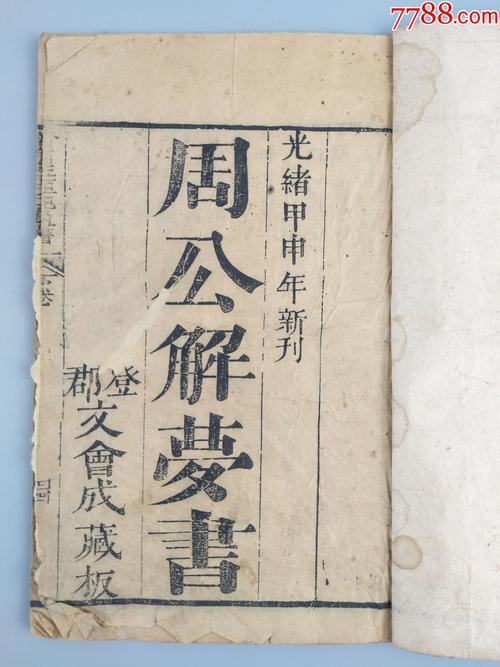 7788.com
光緒甲申年新刊
周公解夢書
登郡
文會成藏板